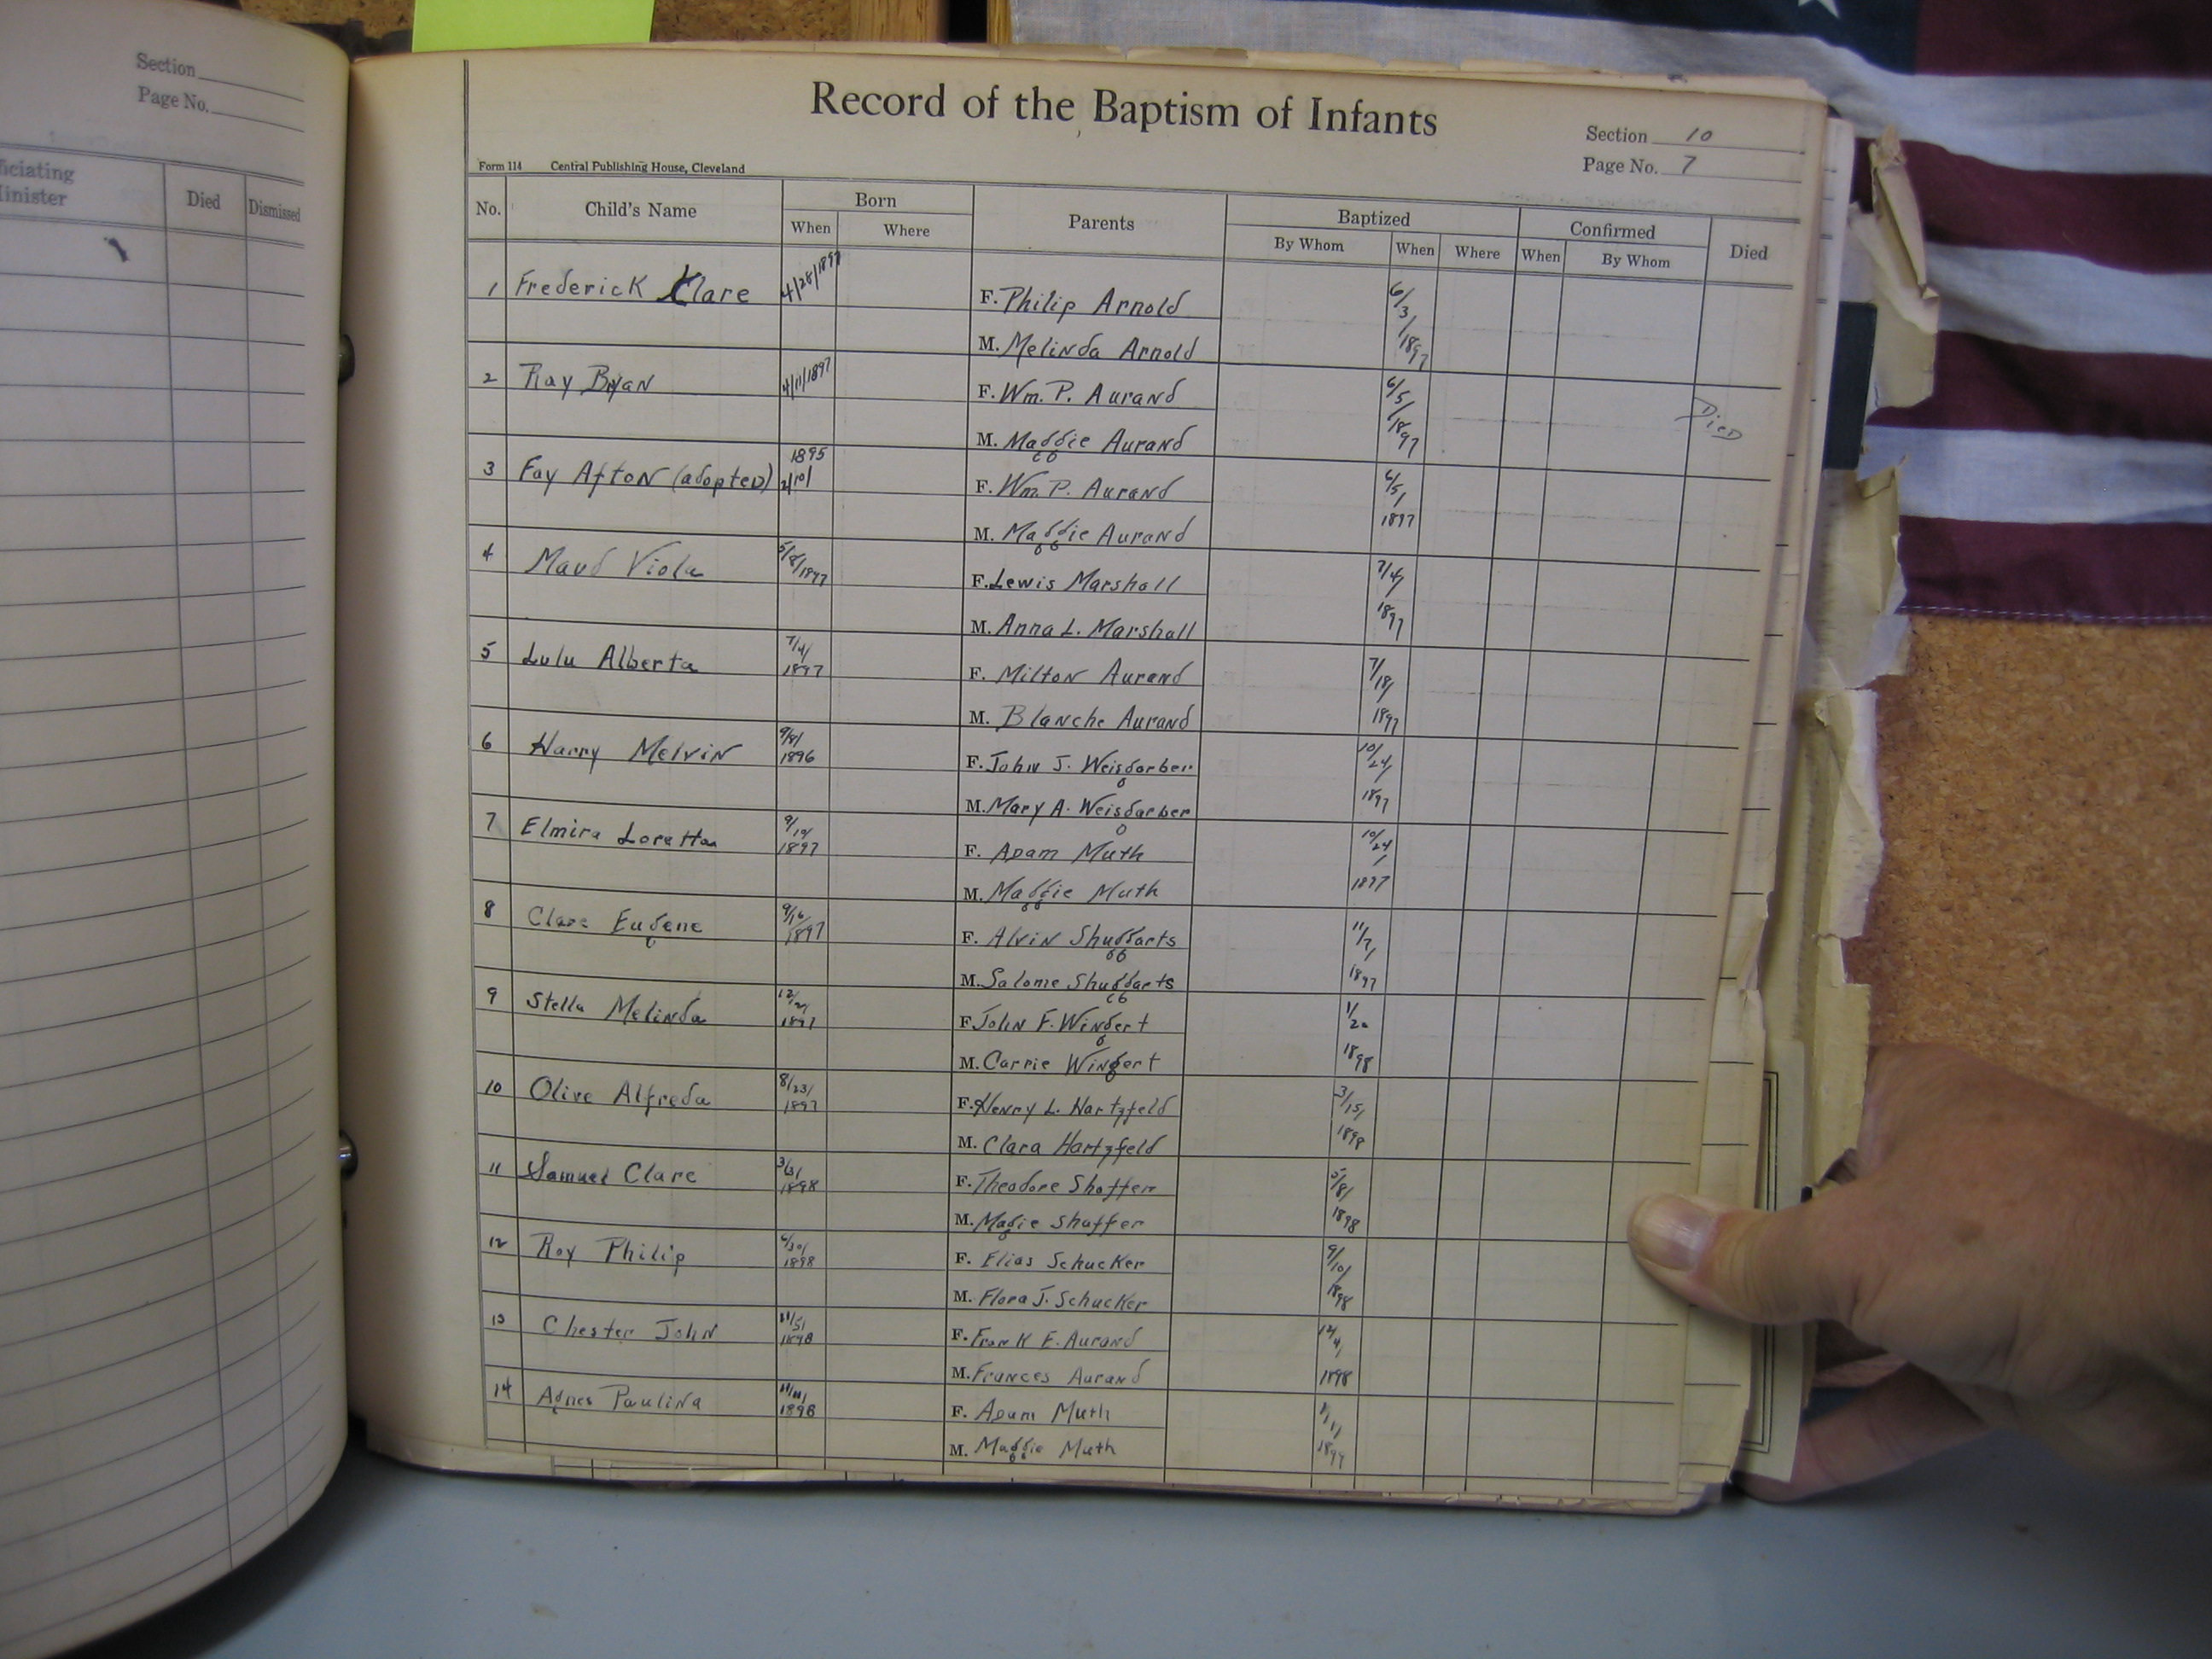 Section
Page No.
ficiating
Minister
Died
Dismissed
Record of the Baptism of Infants
Section 10
Page No. 7
Form 114 Central Publishing House, Cleveland
No. Child's Name Born Parents Baptized Confirmed Died
When Where By Whom When Where When By Whom
1 Frederick Clare 4/28/1897 F. Philip Arnold 6/3/1897
M. Melinda Arnold
2 Ray Bryan 4/11/1897 F. Wm. P. Aurand 6/5/1897 Died
M. Maggie Aurand
3 Fay Afton (adopted) 1895 2/10/ F. Wm. P. Aurand 6/5/1897
M. Maggie Aurand
4 Maud Viola 5/8/1897 F. Lewis Marshall 7/4/1897
M. Anna L. Marshall
5 Lulu Alberta 7/4/1897 F. Milton Aurand 7/18/1897
M. Blanche Aurand
6 Harry Melvin 9/8/1896 F. John J. Weisgarber 10/24/1897
M. Mary A. Weisgarber
7 Elmira Loretta 9/19/1897 F. Adam Muth 10/24/1897
M. Maggie Muth
8 Clare Eugene 9/16/1897 F. Alvin Shuggarts 11/7/1897
M. Salome Shuggarts
9 Stella Melinda 1897 F. John F. Wingert 1/20 1898
M. Carrie Wingert
10 Olive Alfreda 8/23/1897 F. Henry L. Hartzfeld 3/15/1898
M. Clara Hartzfeld
11 Samuel Clare 1898 F. Theodore Shaffer 5/8/1898
M. Magie Shaffer
12 Roy Philip 6/30/1898 F. Elias Schucker 9/10/1898
M. Flora J. Schucker
13 Chester John 11/5/1898 F. Frank E. Aurand 12/4/1898
M. Frances Aurand
14 Agnes Paulina 1898 F. Adam Muth 1/1/1899
M. Maggie Muth